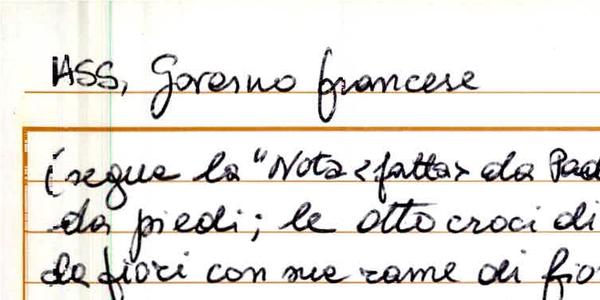 ASS, Governo francese
(segue la "Nota <fatta> da Pad
da piedi; le otto croci di
da fiori con sue rame di fio